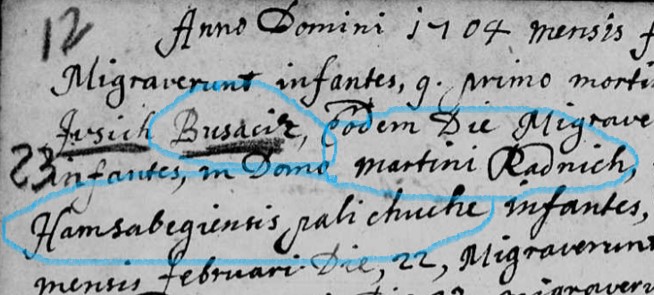 12 Anno Domini 1704 mensis f
Migraverunt infantes, q. primo morti
Jvsich Busaciz, Eodem Die Migrave
23 infantes, in Domo martini Radnich,
Hamsabegiensis palichuche infantes,
mensis februari Die, 22, Migraverunt